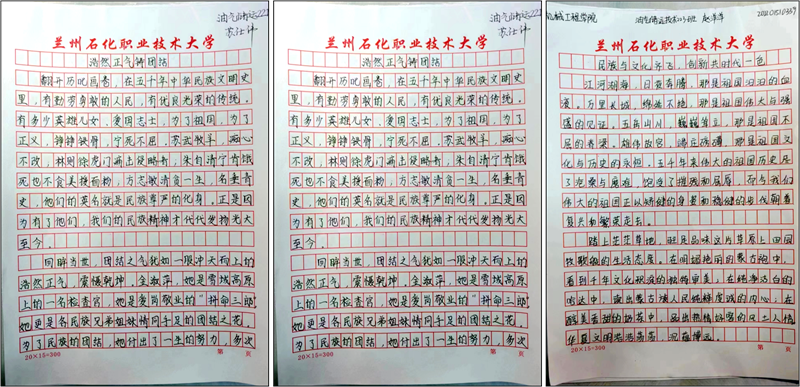 油气储运222
苏仕伟
兰州石化职业技术大学
浩然正气铸团结
翻开历史画卷，在五千年中华民族文明史
里，有勤劳勇敢的人民，有优良光荣的传统。
有多少英雄儿女，爱国志士，为了祖国，为了
正义，铮铮铁骨，宁死不屈。苏武牧羊，痴心
不改，林则徐虎门痛击侵略者，朱自清宁肯饿
死也不食美援面粉，方志敏清贫一生，名垂青
史，他们的英名就是民族尊严的化身。正是因
为有了他们，我们的民族精神才代代发扬光大
至今。
回眸当世，团结之气犹如一股冲天而上的
浩然正气，震慑乾坤。金淑萍，她是雪域高原
上的一名检查官，她是爱岗敬业的“拼命三郎”
她更是各民族兄弟姐妹情同手足的团结之花。
为了民族的团结，她付出了一生的努力，多次
20×15=300
第 页
油气储运222
苏仕伟
兰州石化职业技术大学
浩然正气铸团结
翻开历史画卷，在五千年中华民族文明史
里，有勤劳勇敢的人民，有优良光荣的传统。
有多少英雄儿女，爱国志士，为了祖国，为了
正义，铮铮铁骨，宁死不屈。苏武牧羊，痴心
不改，林则徐虎门痛击侵略者，朱自清宁肯饿
死也不食美援面粉，方志敏清贫一生，名垂青
史，他们的英名就是民族尊严的化身。正是因
为有了他们，我们的民族精神才代代发扬光大
至今。
回眸当世，团结之气犹如一股冲天而上的
浩然正气，震慑乾坤。金淑萍，她是雪域高原
上的一名检查官，她是爱岗敬业的“拼命三郎”
她更是各民族兄弟姐妹情同手足的团结之花。
为了民族的团结，她付出了一生的努力，多次
20×15=300
第 页
机械工程学院
油气储运技术
兰州石化职业技术大学
民族与文化齐飞，创新共时代一色
江河湖海，日夜奔腾，那是祖国汩汩的血
液。万里长城，绵延不绝，那是祖国伟大与强
盛的见证。五岳山川，巍巍耸立，那是祖国不
屈的脊梁。雄伟故宫，那是祖国文
化与历史的永恒。五千年来伟大的祖国历史历经
了沧桑与磨难，饱受了摧残和屈辱，而今我们
伟大的祖国正以矫健的身姿和稳健的步伐朝着
复兴和繁荣走去。
踏上茫茫草地，旺足品味这片草原上田园
牧歌般的生活态度，在间谧艳丽的蒙古袍中，
看到千年文化积淀的独特审美，在绵长沾白的
哈达中，蒙古族人民纯粹虔诚的内心，在
酸美香甜的奶茶中，品出热情好客的风土人情
华夏文明浩浩荡荡，沉蕴博远。
20×15=300
第 页